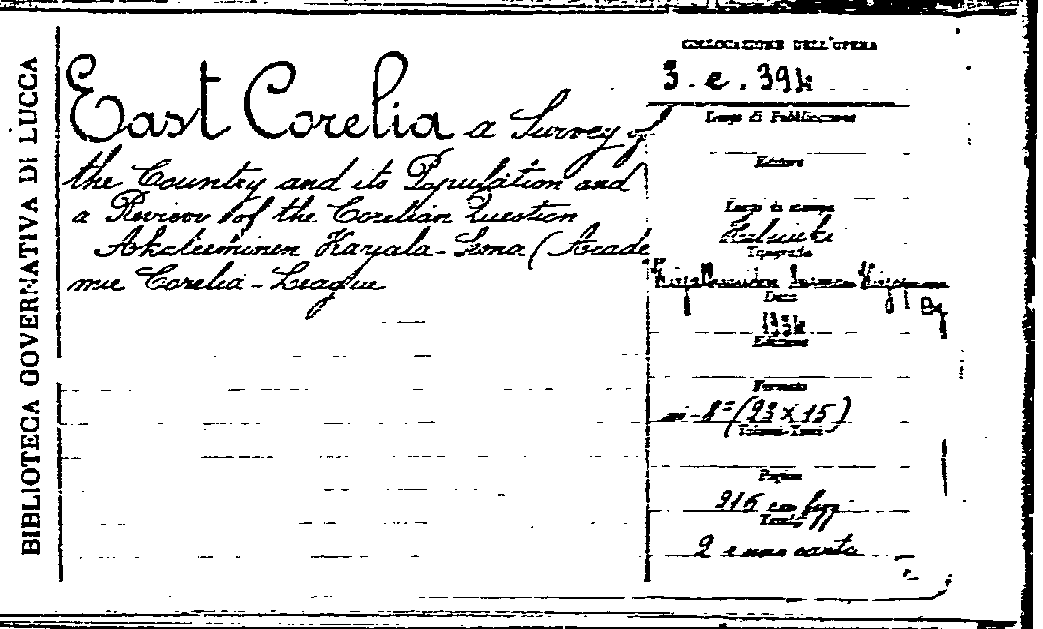 BIBLIOTECA GOVERNATIVA DI LUCCA
East Corelia a Survey of
the Country and its Population and
a Review of the Corelian Question
Akateeminen Karjala-Seura (Acade
mic Corelia-League
COLLOCAZIONE DELL'OPERA
3.e.394
Luogo di Pubblicazione
Editore
Luogo di stampa
Helsinki
Tipografia
Data
1934
Edizione
Formato
in-8° (23 x 15)
Pagine
216 con figg
Tavole
2 e una carta